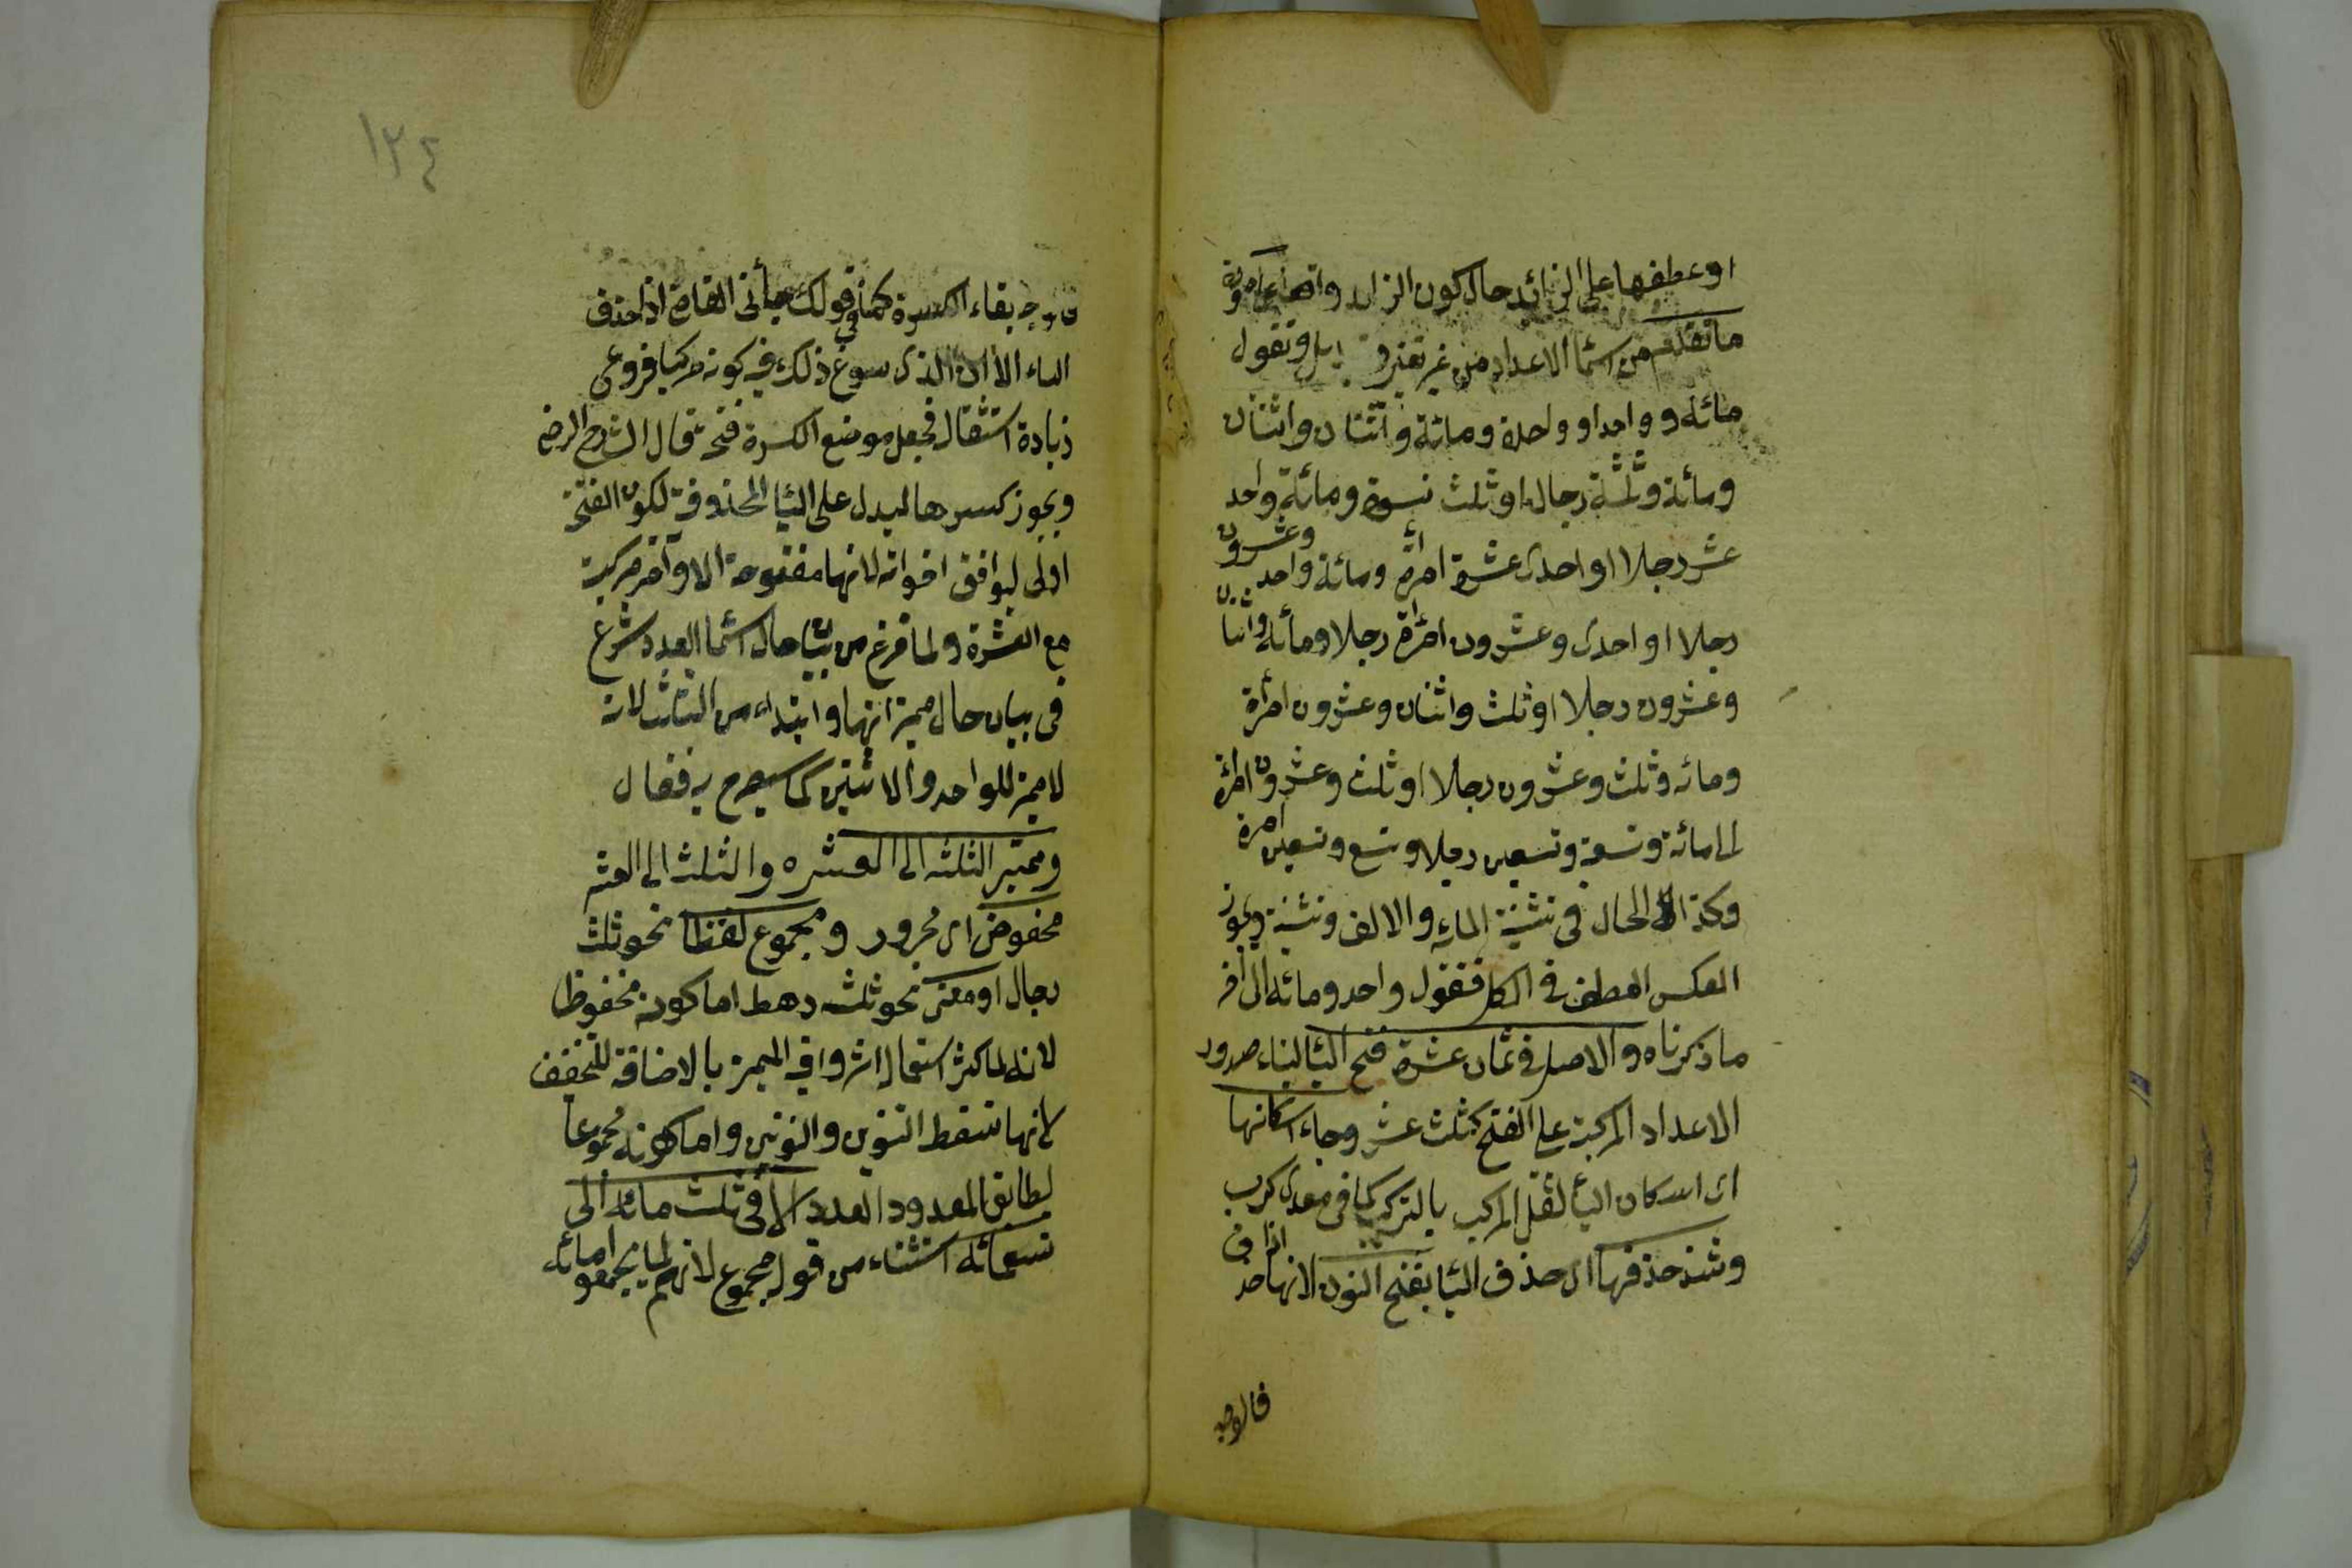 او عطفها على الزائد حال كون الزائد واقعا على صورة
ما تقدم من اسماء الاعداد من غير تغير و تبديل وتقول
مائة و واحد او واحدة ومائة و اثنان واثنتان
ومائة وثلثة رجال او ثلث نسوة ومائة واحد
عشر رجلا او احدى عشرة امرأة ومائة واحد وعشرون
رجلا او احدى وعشرون امرأة رجلا ومائة واثنان
وعشرون رجلا او ثلث واثنان وعشرون امرأة
ومائه وثلث وعشرون رجلا او ثلث وعشرون امرأة
الى مائة وتسعة وتسعين رجلا وتسع وتسعين امرة
وكذا الحال فى تثنية المايه والالف وتثنية ويجوز
العكس العطف فى الكل فتقول واحد ومائه الى آخر
ما ذكرناه والاصل فى ثمان عشرة فتح اليا لبناء صدور
الاعداد المركبة على الفتح كثلث عشر وجاء اسكانها
اى اسكان اليأ لثقل المركب بالتركيب كما فى معدى كرب
وشذ حذفها اى حذف اليا بفتح النون لانها اذا حذف
فالوجه
١٢٤
فالوجه بقاء الكسرة كما فى قولك جأنى القاض اذا حذف
الياء الا ان الذى سوغ ذلك فيه كونه مركبا فروعى
زيادة استثقال فجعل موضع الكسرة فتحة قال الشارح الرضى
ويجوز كسرها ليدل على اليا المحذوفة لكون الفتحة
اولى ليوافق اخواته لانها مفتوحة الاواخر مركبة
مع العشرة ولما فرغ من بيان حال اسماء العدد شرع
فى بيان حال مميزاتها وابتداء من الثلث لانه
لا مميز للواحد والاثنين كما سيصرح به فقال
ومميز الثلثه الى العشره والثلث الى العشر
مخفوض اى مجرور ومجموع لفظا نحو ثلث
رجال او معنى نحو ثلثه رهط اما كونه مخفوظا
لانه لما كثر استعماله اثروا فى المميز بالاضافة للتخفف
لانها تسقط التنوين والنونين واما كونه مجموعا
لطابق المعدود العدد الا فى ثلث مائه الى
تسعمائه استثناء من قوله مجموع لانهم لما يجمعوا مائه